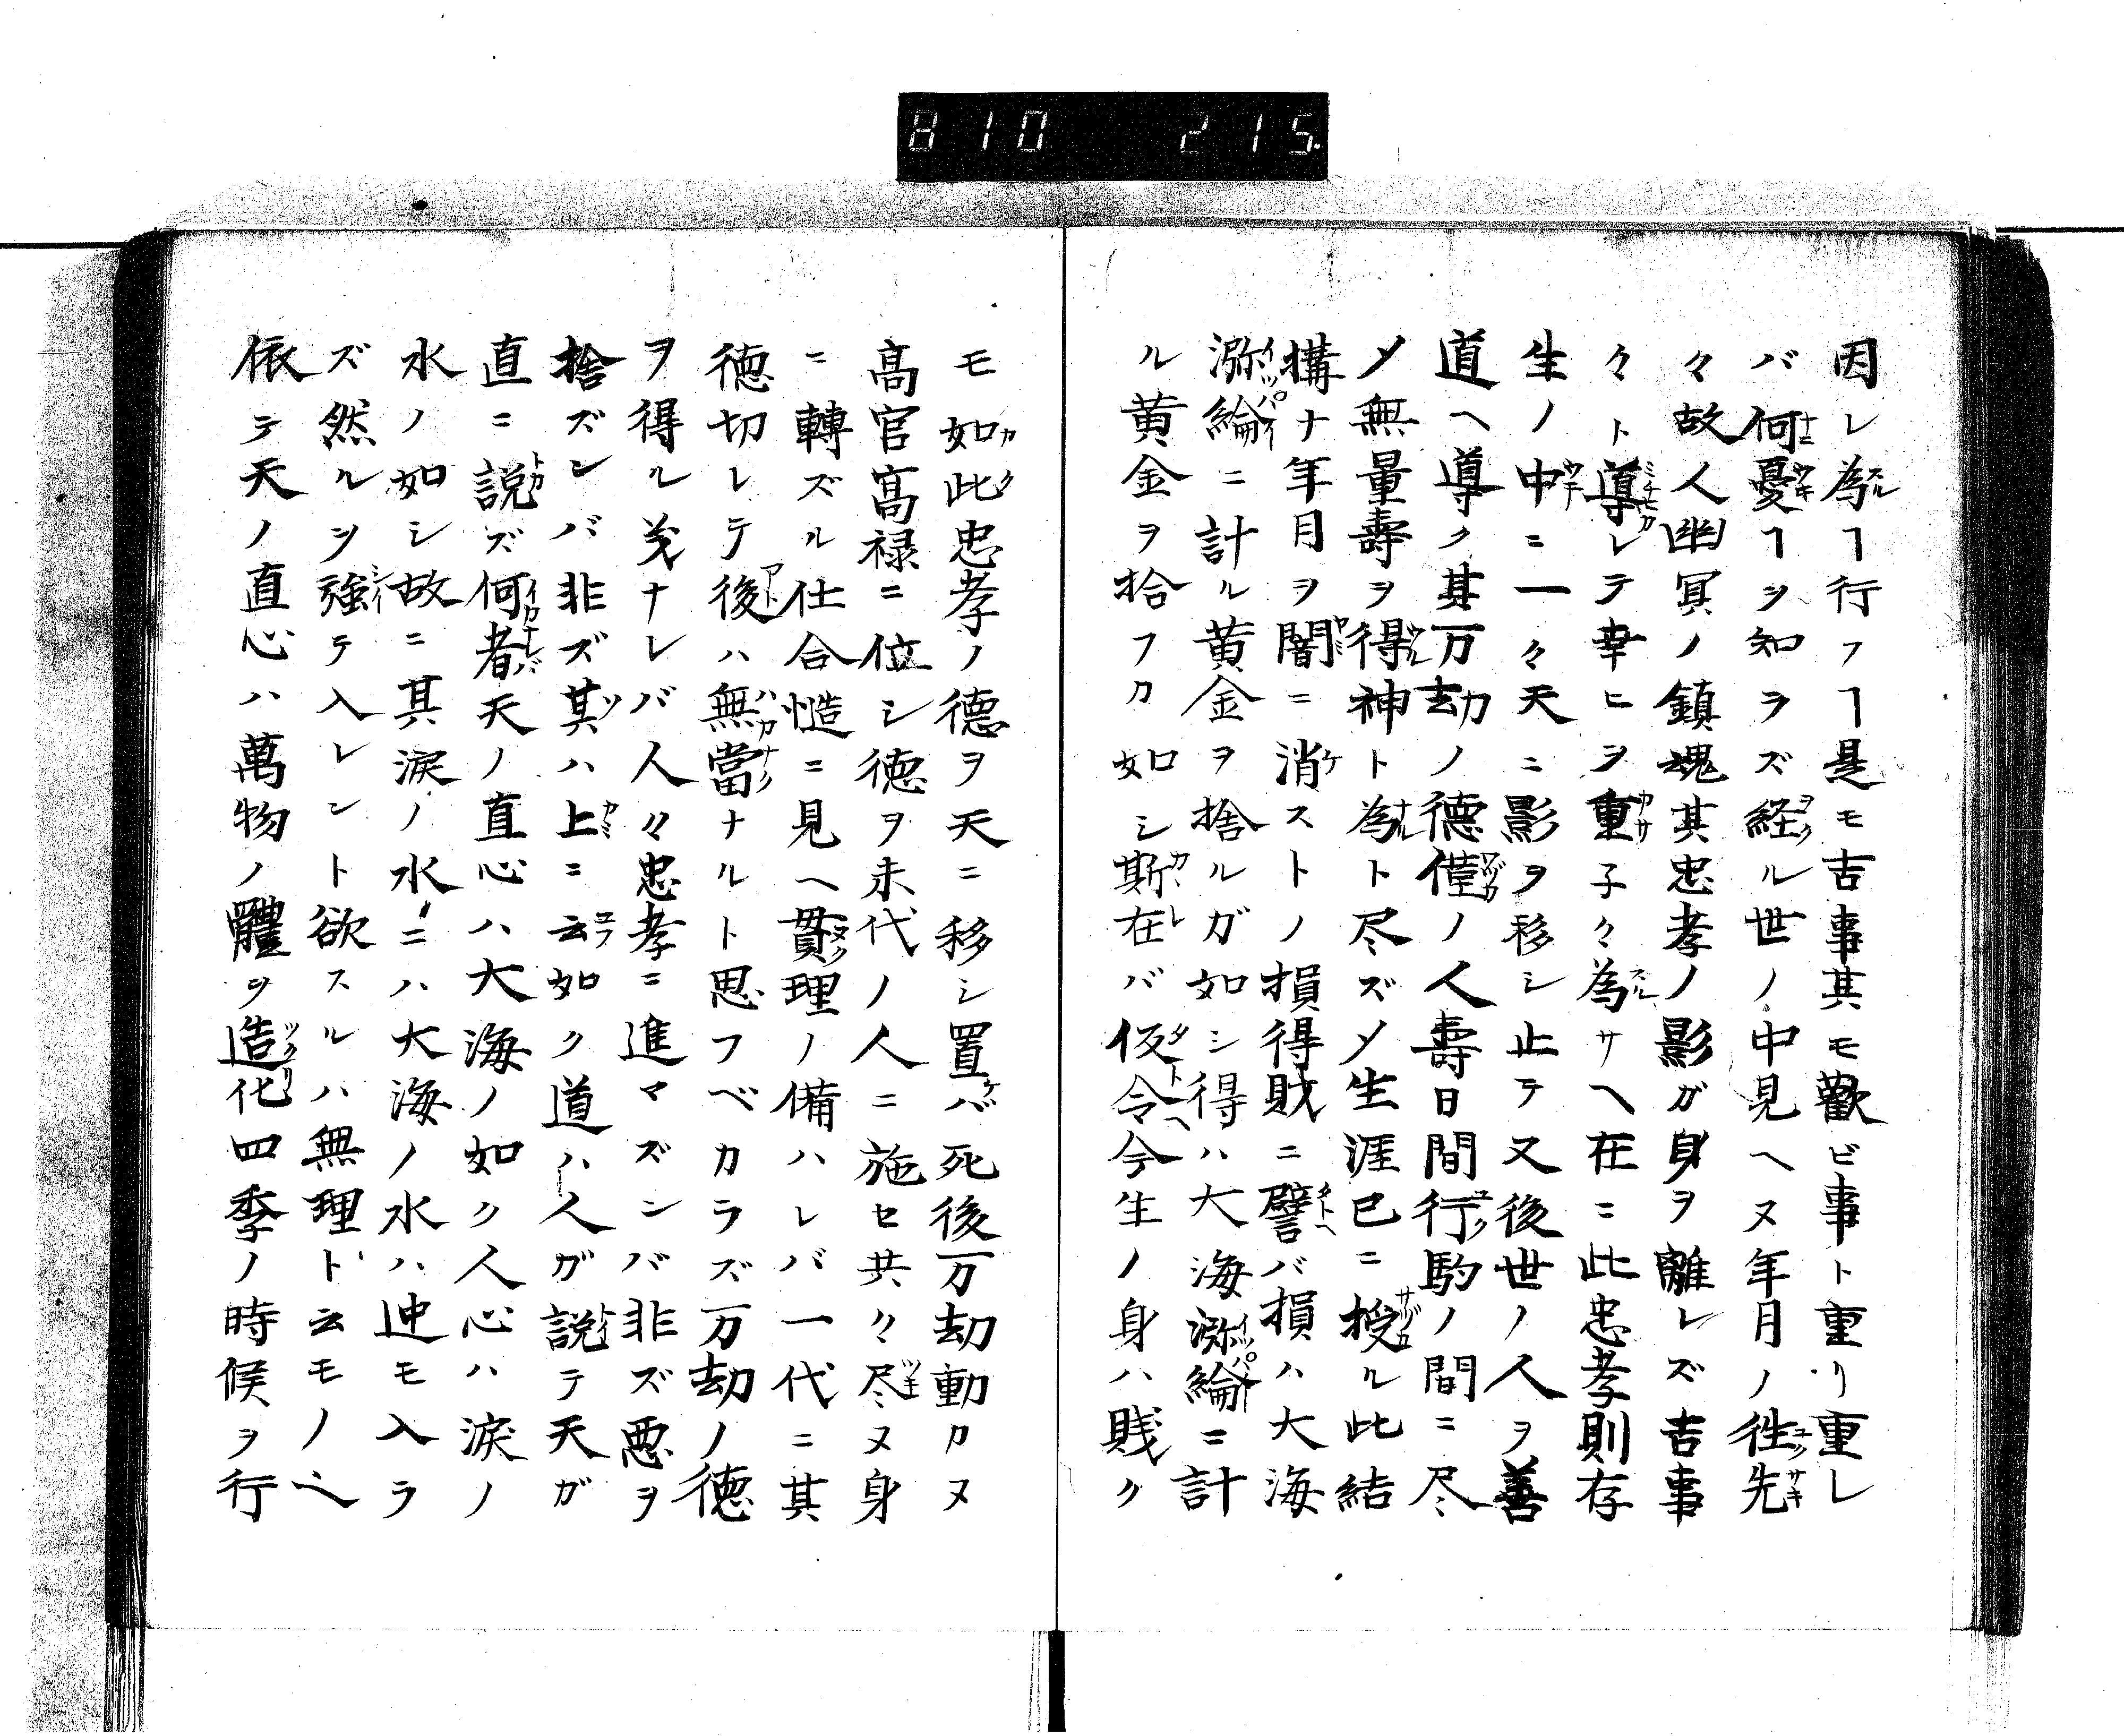 810 215
因レ為ヿ行フヿ是モ吉事其モ歡ビ事ト重リ重レ
バ何憂ヿヲ知ラズ経ル世ノ中見ヘヌ年月ノ徃先
々故人幽冥ノ鎮魂其忠孝ノ影ガ身ヲ離レズ吉事
々ト導レテ幸ヒヲ重子々為サヘ在ニ此忠孝則存
生ノ中ニ一々天ニ影ヲ移シ止テ又後世ノ人ヲ善
道ヘ導ク其万劫ノ德僅ノ人壽日間行駒ノ間ニ尽
〆無量壽ヲ得神ト為ト尽ズ〆生涯已ニ授ル此結
構ナ年月ヲ闇ニ消ストノ損得財ニ譬バ損ハ大海
瀰綸ニ計ル黄金ヲ捨ルガ如シ得ハ大海瀰綸ニ計
ル黄金ヲ拾フカ如シ斯在バ仮令今生ノ身ハ賎ク
モ如此忠孝ノ德ヲ天ニ移シ置バ死後万劫動カヌ
高官高禄ニ位シ徳ヲ末代ノ人ニ施セ共々尽ヌ身
ニ轉ズル仕合慥ニ見ヘ貫理ノ備ハレバ一代ニ其
徳切レテ後ハ無當ナルト思フベカラズ万劫ノ徳
ヲ得ル㒵ナレバ人々忠孝ニ進マズンバ非ズ悪ヲ
捨ズンバ非ズ其ハ上ニ云如ク道ハ人ガ説テ天ガ
直ニ説ズ何者天ノ直心ハ大海ノ如ク人心ハ涙ノ
水ノ如シ故ニ其涙ノ水ニハ大海ノ水ハ迚モ入ラ
ズ然ルヲ強テ入レント欲スルハ無理ト云モノヘ
依テ天ノ直心ハ萬物ノ體ヲ造化四季ノ時候ヲ行